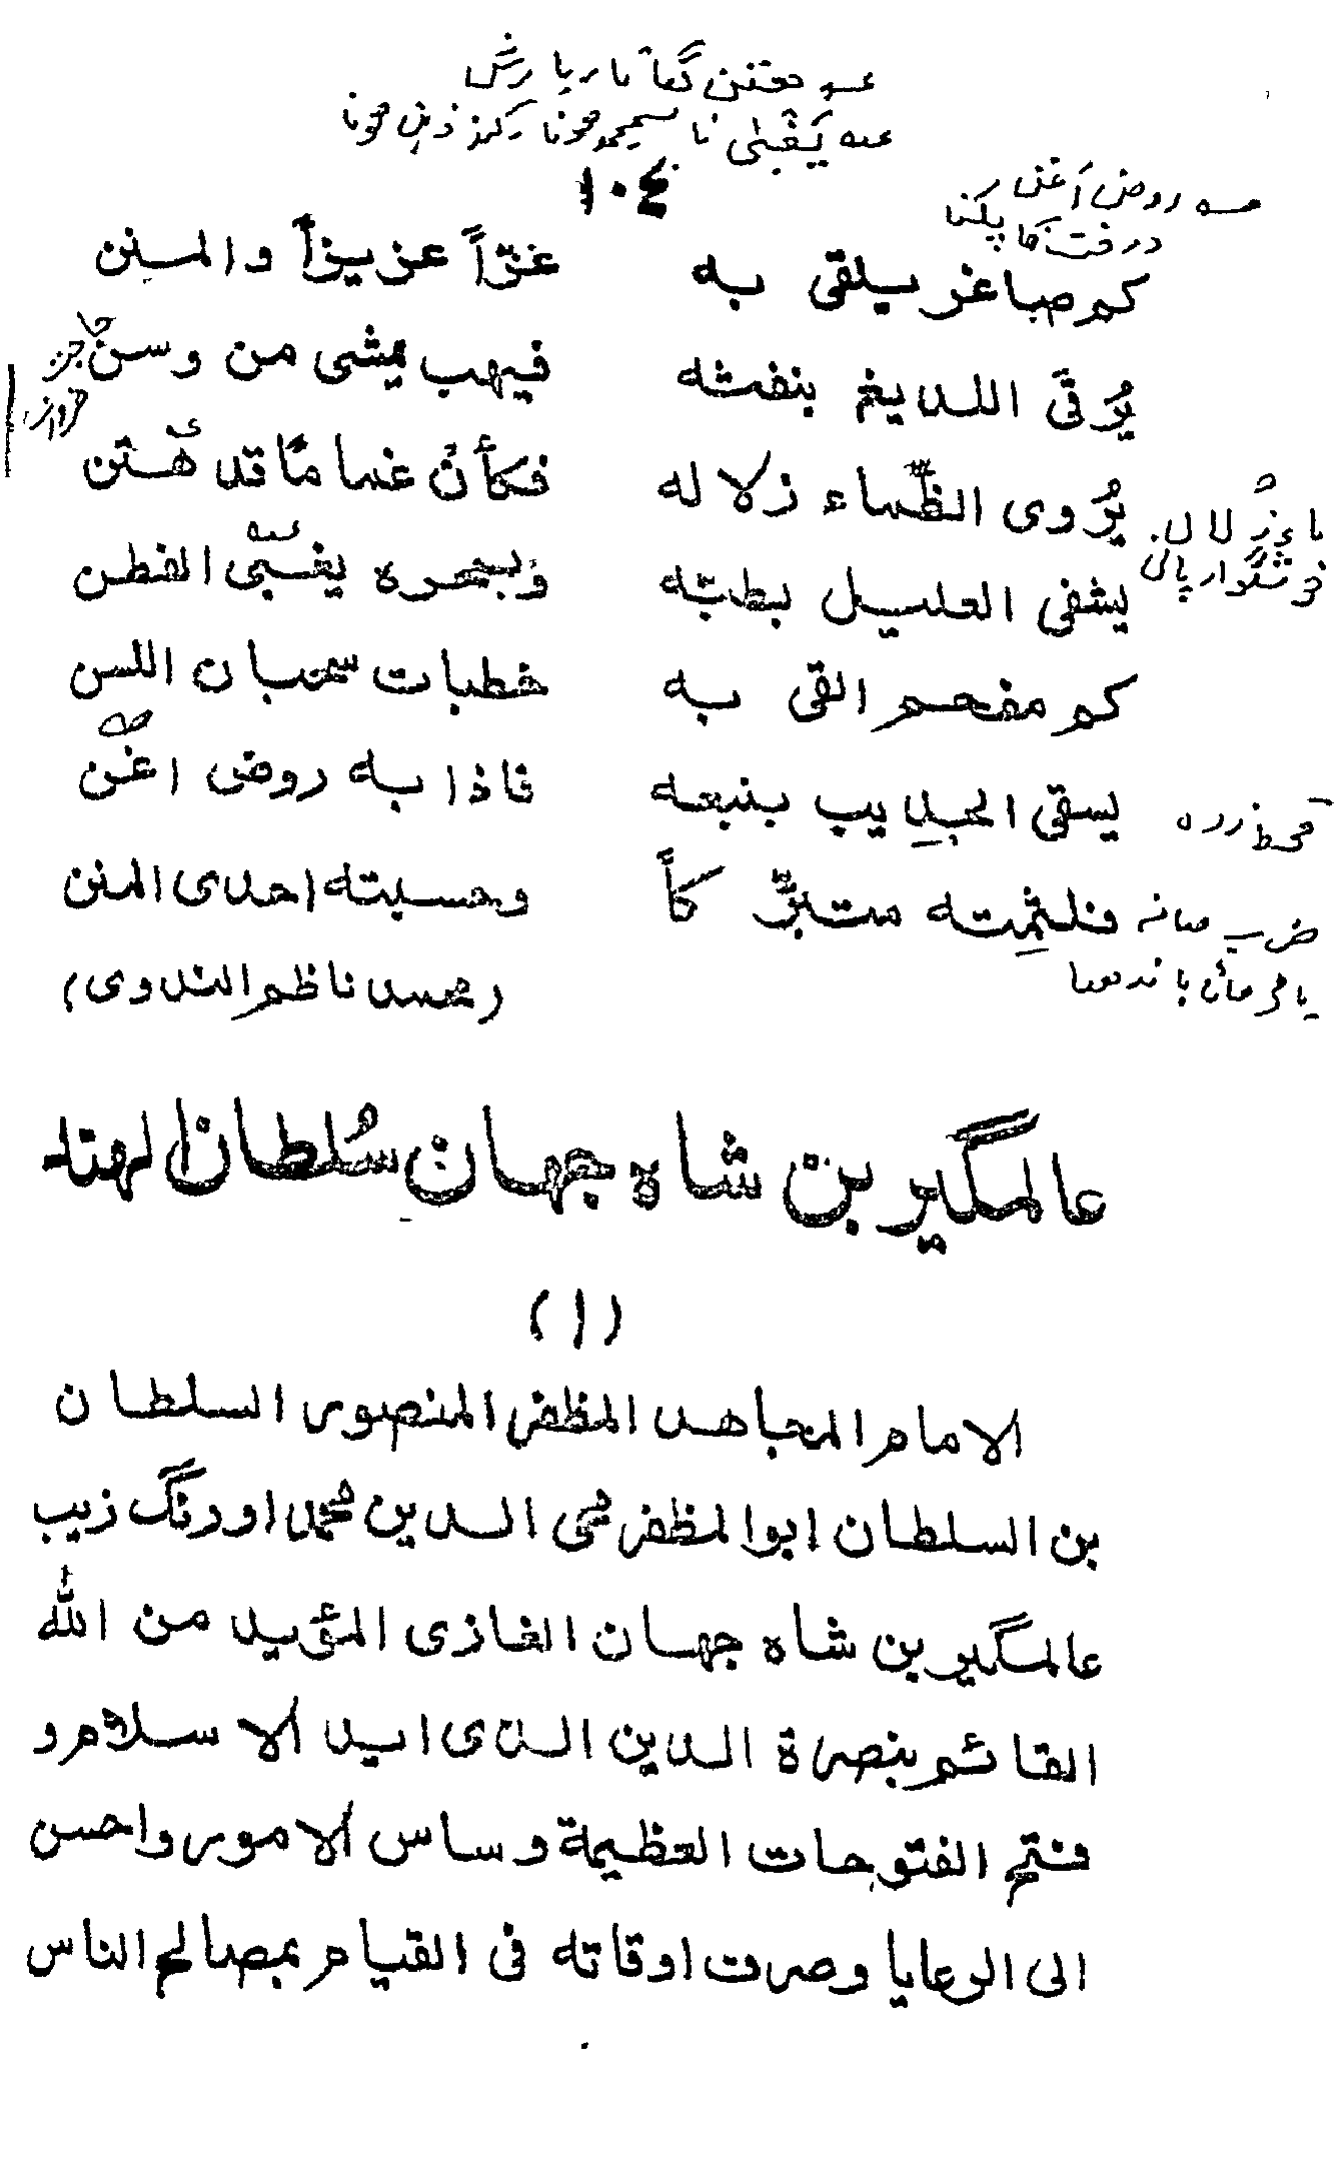 عـه هتن گھٹا نا ر یا رش
عـه یغبّی نا سمجھ ہونا کند ذہن ہونا
١٠٤
عـه روض اغن
درخت کا
كم صاغر يلقى به عزّاً عزيزاً والمنن
يُرقى اللديغ بنفثه فيهب يمشى من وسن
يُروى الظماء زلاله فكأن غماما قد هتن
ماء زلال
خوشگوار پانی
يشفى العليل بطبّه وبسحره يغبّى الفطن
كم مفحم القى به خطبات سحبان اللسن
يسقى الجديب بنبعه فاذا به روض اغنّ
قحط زدہ
فلثمته متبرّكاً وحسبته احدى المنن
(محمد ناظم الندوى)
عالمگير بن شاه جهان سُلطان الهند
(١)
الامام المجاهد المظفر المنصور السلطان
بن السلطان ابوالمظفر محى الدين محمد اورنگ زيب
عالمگير بن شاه جهان الغازى المؤيد من الله
القائم بنصرة الدين الذى ايد الاسلام و
فتح الفتوحات العظيمة وساس الامور واحسن
الى الرعايا وصرف اوقاته فى القيام بمصالح الناس